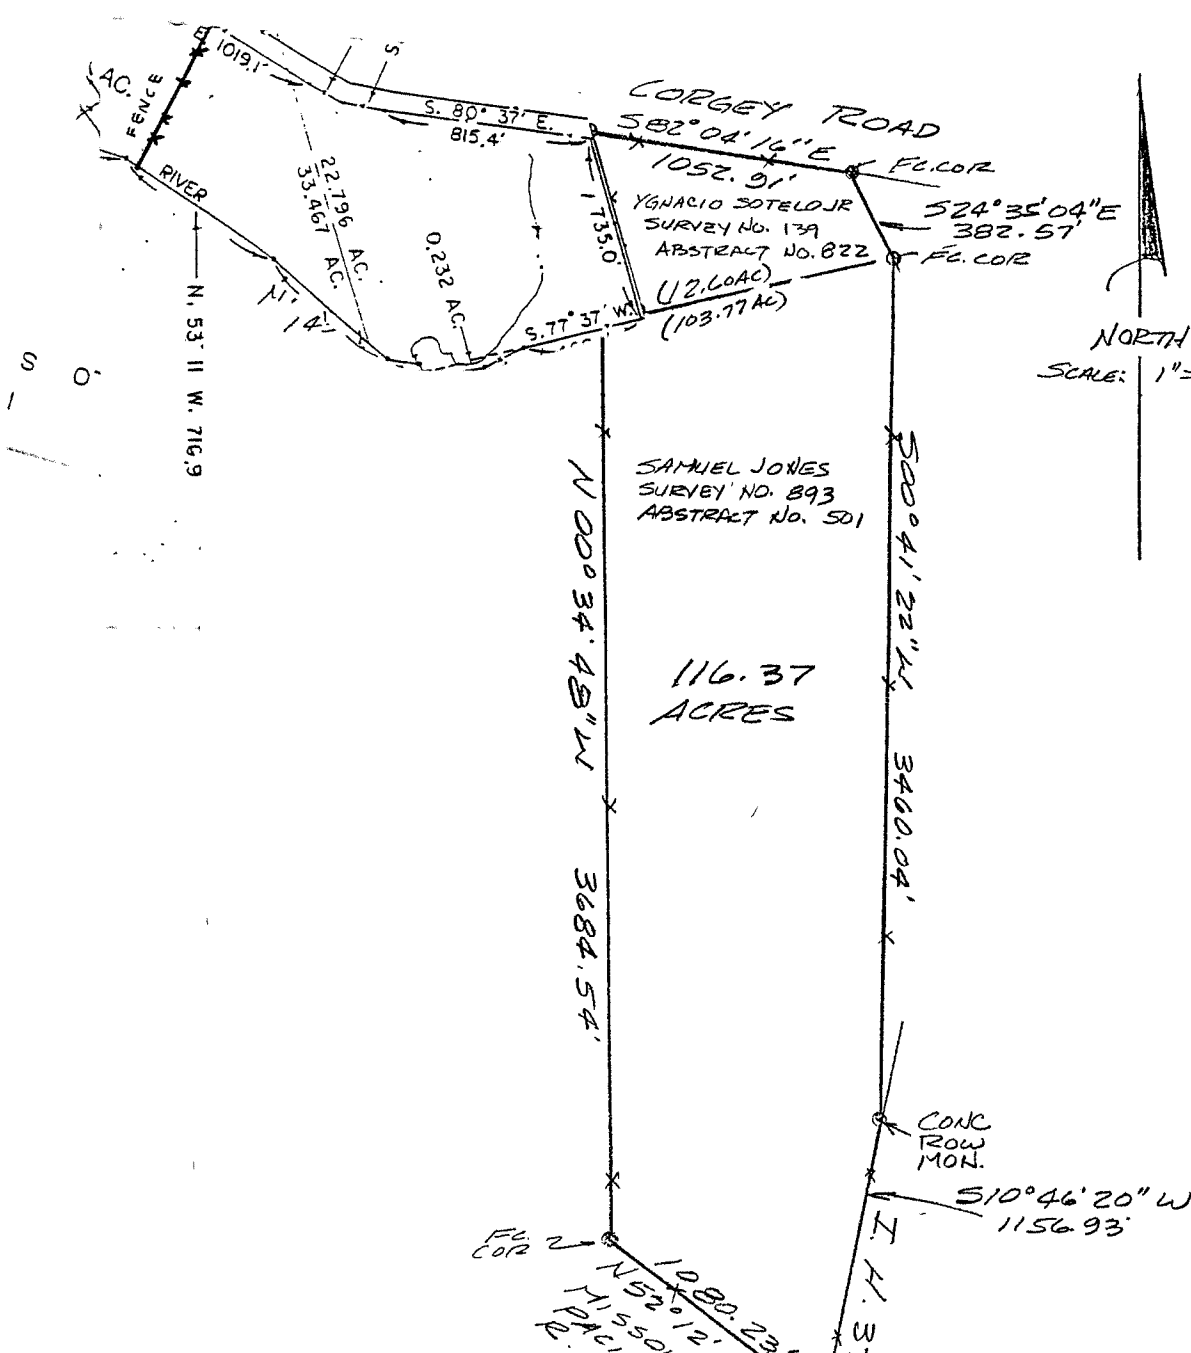 1019.1'
S.
AC.
FENCE
RIVER
S. 80° 37' E.
815.4'
CORGEY ROAD
S82°04'16"E
1052.91'
FC.COR
S24°35'04"E
382.57'
FC.COR
YGNACIO SOTELO JR
SURVEY NO. 139
ABSTRACT NO. 822
735.0'
22.796 AC.
33.467 AC.
0.232 AC.
S.77° 37' W.
(12.60AC)
(103.77 AC)
N. 53° 11 W. 716.9
S O
NORTH
SCALE: 1"=
SAMUEL JONES
SURVEY NO. 893
ABSTRACT NO. 501
N 00° 34' 48" W 3684.54'
S00° 41' 22" W 3460.04'
116.37
ACRES
CONC
ROW
MON.
S10°46'20" W
1156.93'
I. H. 3
FC.
COR
1080.23
N52°12'
MISSO
PACI
R.